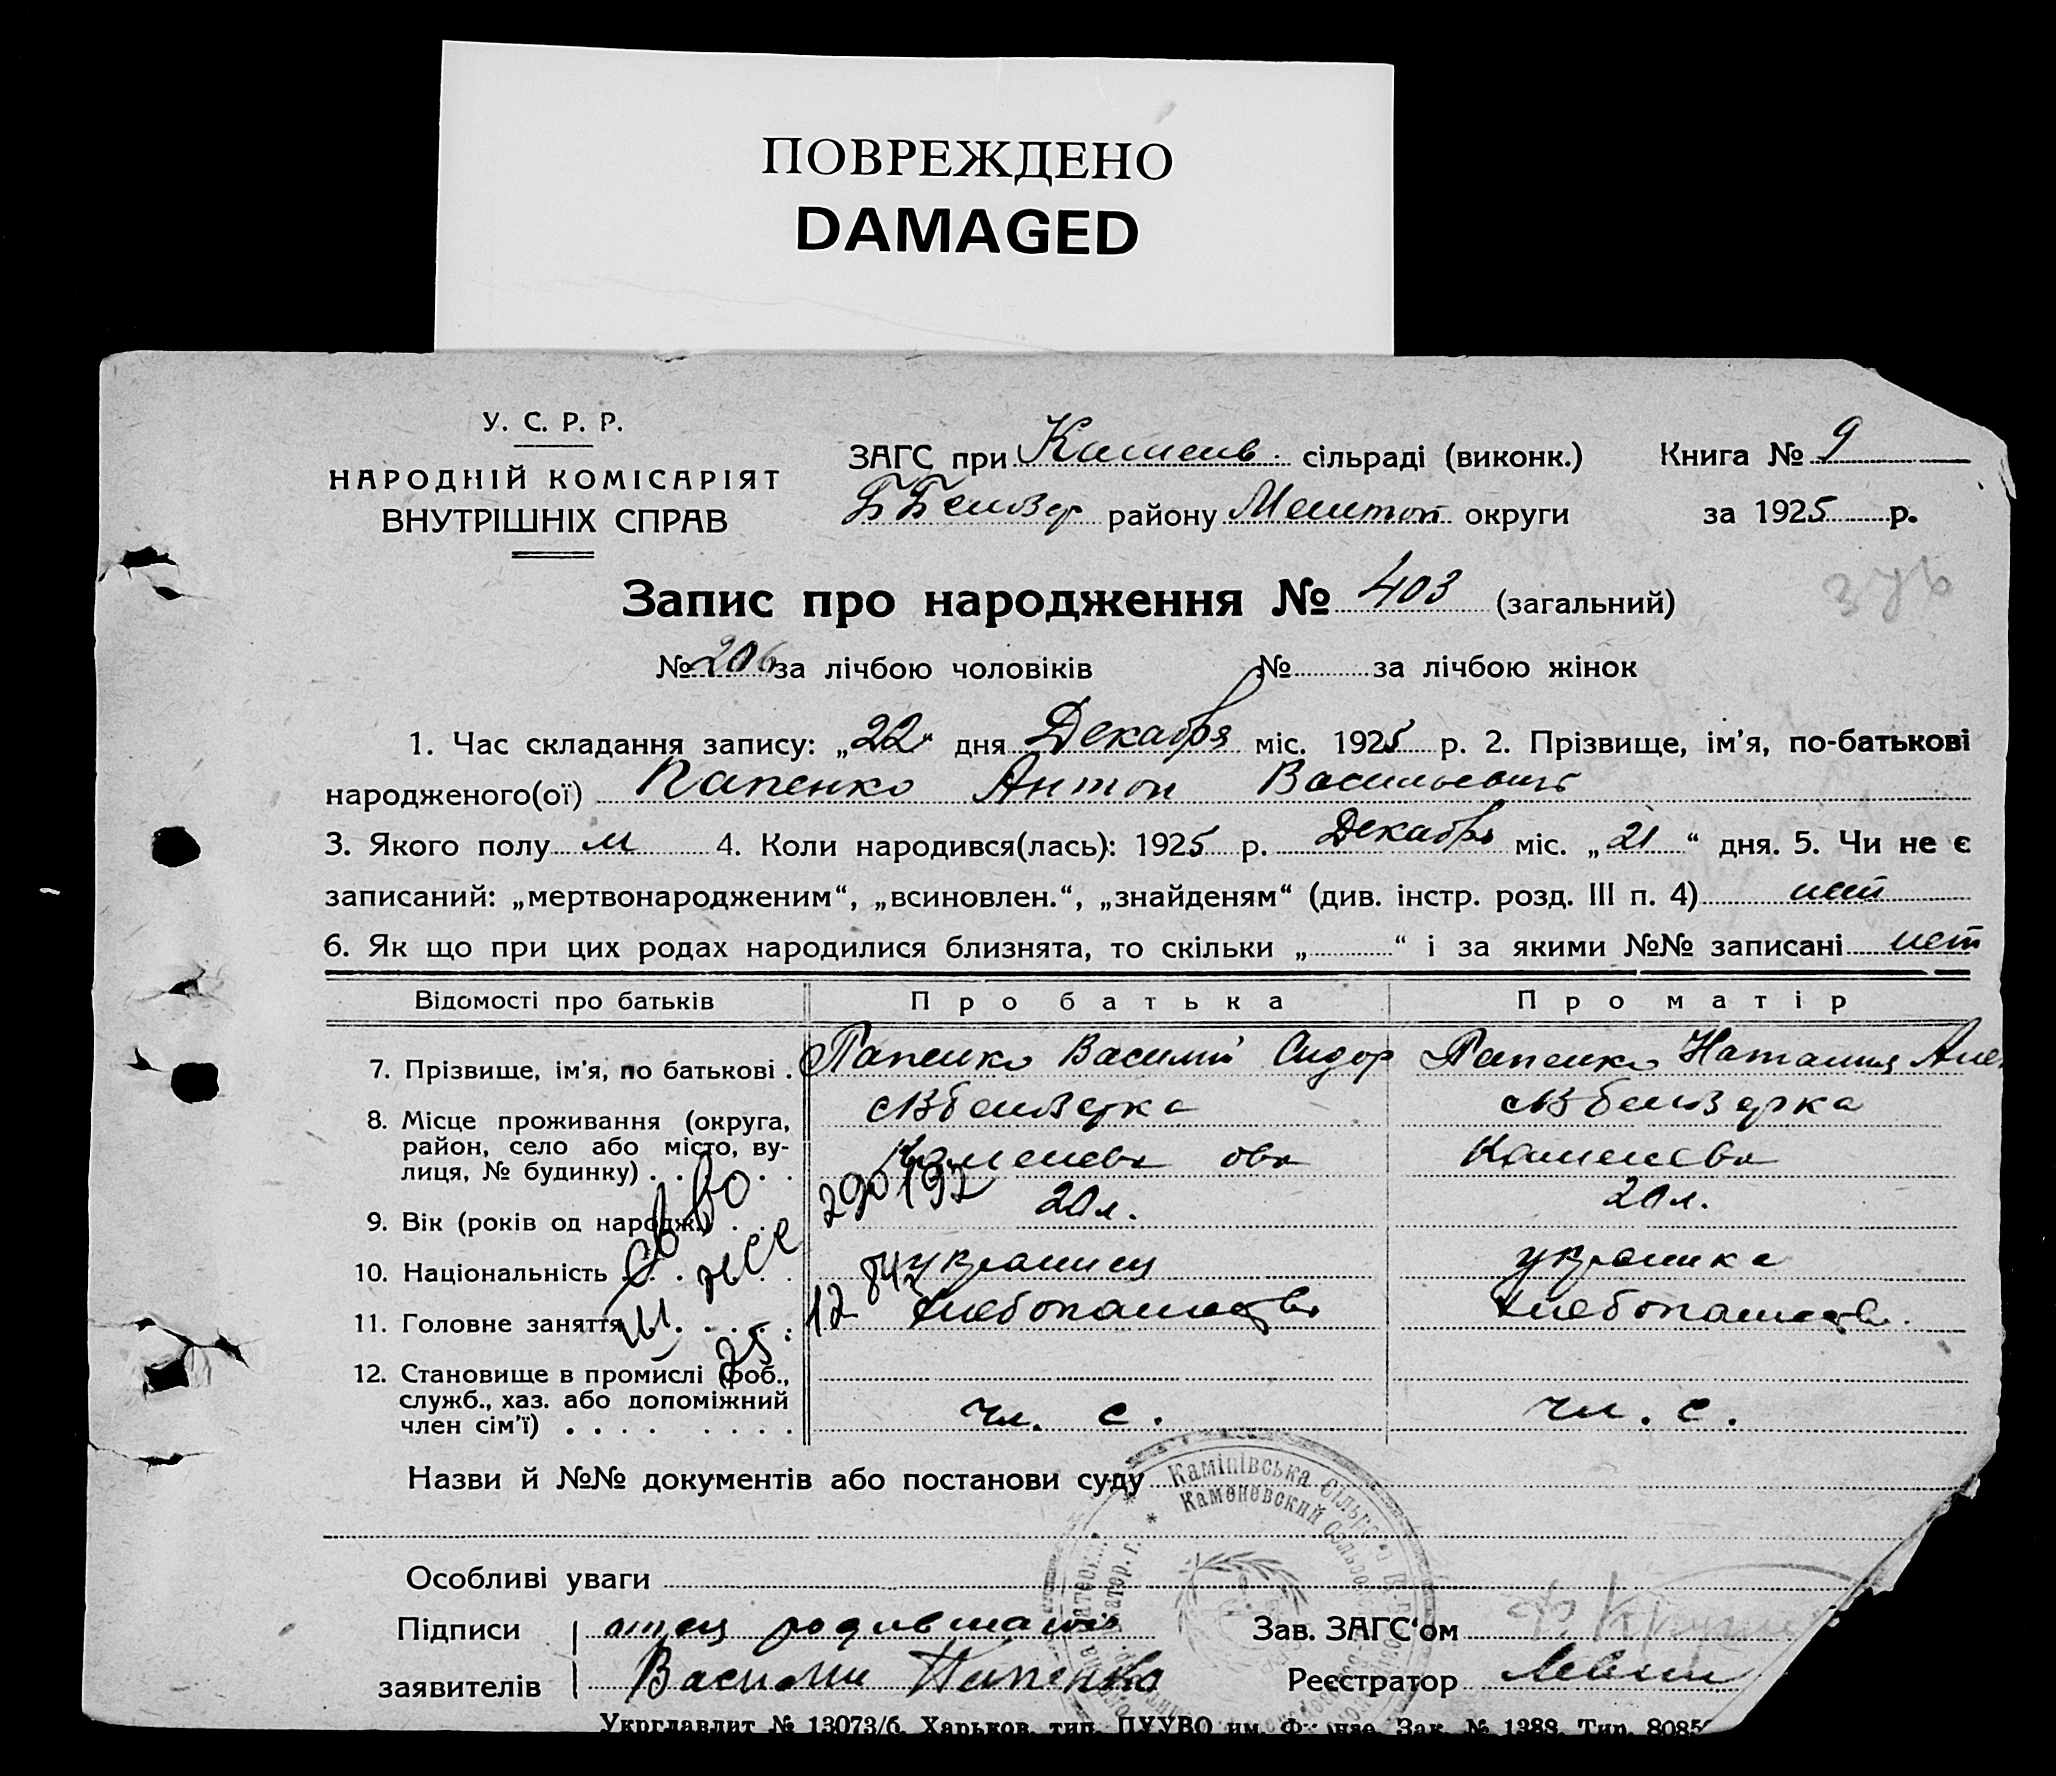 ПОВРЕЖДЕНО
DAMAGED
У. С. Р. Р.
НАРОДНІЙ КОМІСАРІЯТ
ВНУТРІШНІХ СПРАВ
ЗАГС при Каменв. сільраді (виконк.) Книга № 9
району округи за 1925 р.
Запис про народження № 403 (загальний)
№ 206 за лічбою чоловіків № за лічбою жінок
1. Час складання запису: „22“ дня Декабря міс. 1925 р. 2. Прізвище, ім’я, по-батькові
народженого(ої) Папенко Антон Васильевич
3. Якого полу м 4. Коли народився(лась): 1925 р. Декабрь міс. „21“ дня. 5. Чи не є
записаний: „мертвонародженим“, „всиновлен.“, „знайденям“ (див. інстр. розд. III п. 4) нет
6. Як що при цих родах народилися близнята, то скільки „ “ і за якими №№ записані нет
Відомості про батьків Про батька Про матір
7. Прізвище, ім’я, по батькові . Папенко Василий Сидор Папенко Наталия
8. Місце проживання (округа,
район, село або місто, ву-
лиця, № будинку) . . . . . Каменева Каменева
9. Вік (років од народж.) . . . 20 л. 20 л.
10. Національність . . . . . украинец украинка
11. Головне заняття . . . . . хлебопашество хлебопашеств.
12. Становище в промислі (роб.,
служб., хаз. або допоміжний
член сім’ї) . . . . . . . . чл. с. чл. с.
Назви й №№ документів або постанови суду
Камінівська Сільрада
Каменевский
Особливі уваги
Підписи отец родившагося Зав. ЗАГС‘ом
заявителів Василий Папенко Реєстратор
Укрглавлит № 13073/б. Харьков, тип. ПУУВО им. Фрунзе. Зак. № 1388. Тир.